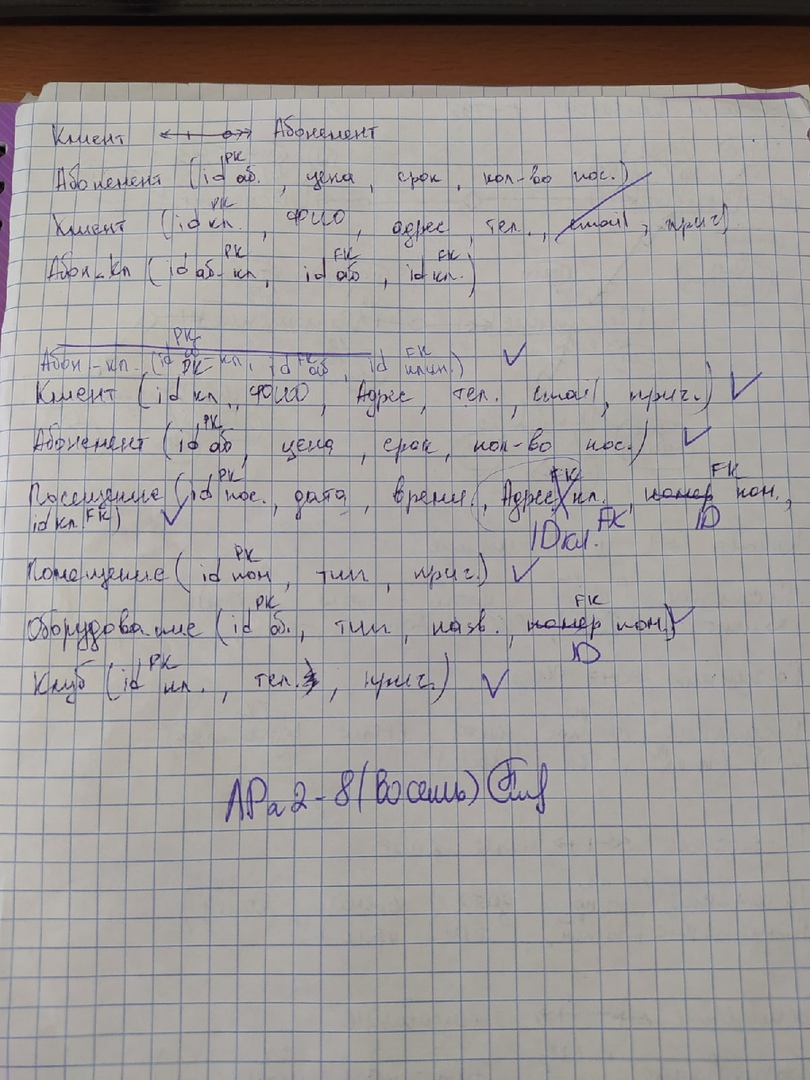 Клиент Абонемент
Абонемент (id аб. PK, цена, срок, кол-во пос.)
Клиент (id кл. PK, ФИО, адрес, тел., email, прич.)
Абон-Кл (id аб-кл PK, id аб FK, id кл. FK)
Абон-кл. (id аб-кл. PK, id аб FK, id кл. FK)
Клиент (id кл. PK, ФИО, Адрес, тел., email, прич.)
Абонемент (id аб PK, цена, срок, кол-во пос.)
Посещение (id пос. PK, дата, время, Адрес кл. FK, номер пом. FK,
id кл. FK) IDкл. FK ID
Помещение (id пом PK, тип, прич.)
Оборудование (id аб. PK, тип, назв., номер пом. FK)
ID
Клуб (id кл. PK, тел., прич.)
ЛР а2-8 (восемь)